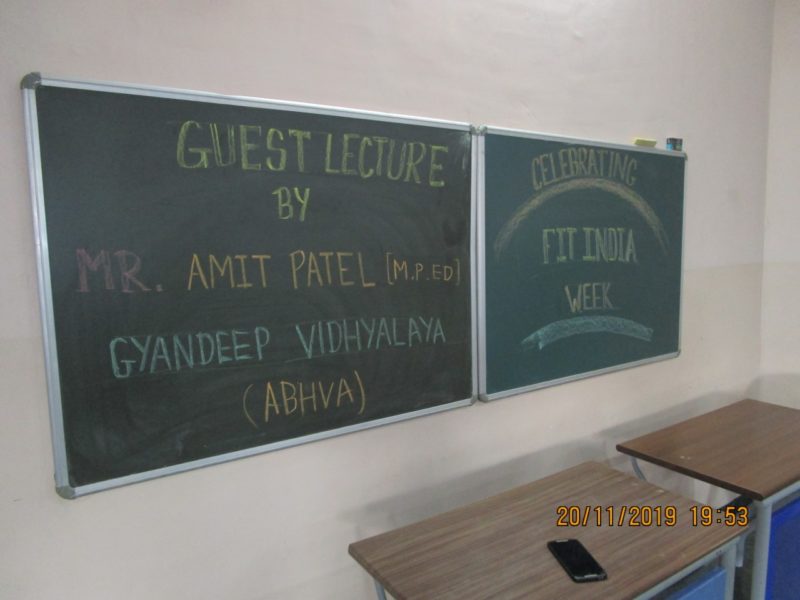 GUEST LECTURE
BY
MR. AMIT PATEL [M.P.ED]
GYANDEEP VIDHYALAYA
(ABHVA)
CELEBRATING
FIT INDIA
WEEK
20/11/2019 19:53